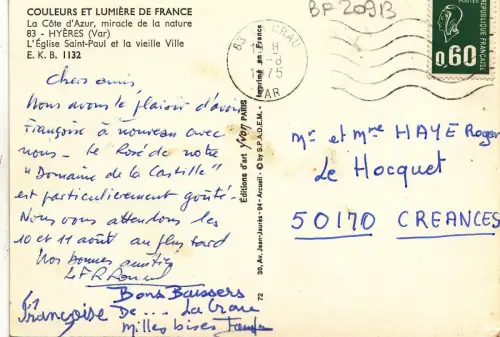 COULEURS ET LUMIÈRE DE FRANCE
La Côte d'Azur, miracle de la nature
83 - HYÈRES (Var)
L'Église Saint-Paul et la vieille Ville
E. K. B. 1132
Chers amis,
Nous avons le plaisir d'avoir
Françoise à nouveau avec
nous - Le Rosé de notre
"Domaine de la Castille"
est particulièrement goûté.
Nous vous attendons les
10 et 11 août au plus tard
Nos bonnes amitiés
Bons Baisers
De ... La Crau
Milles bises
Françoise
Editions d'art yvon PARIS
Imprimé en France
30, Av. Jean-Jaurès - 94 - Arcueil - © by S.P.A.D.E.M.
72
BF 20913
83 CRAU
VAR
POSTES
REPUBLIQUE FRANÇAISE
0,60
Mr et Mme HAYE Roger
Le Hocquet
50170 CREANCES